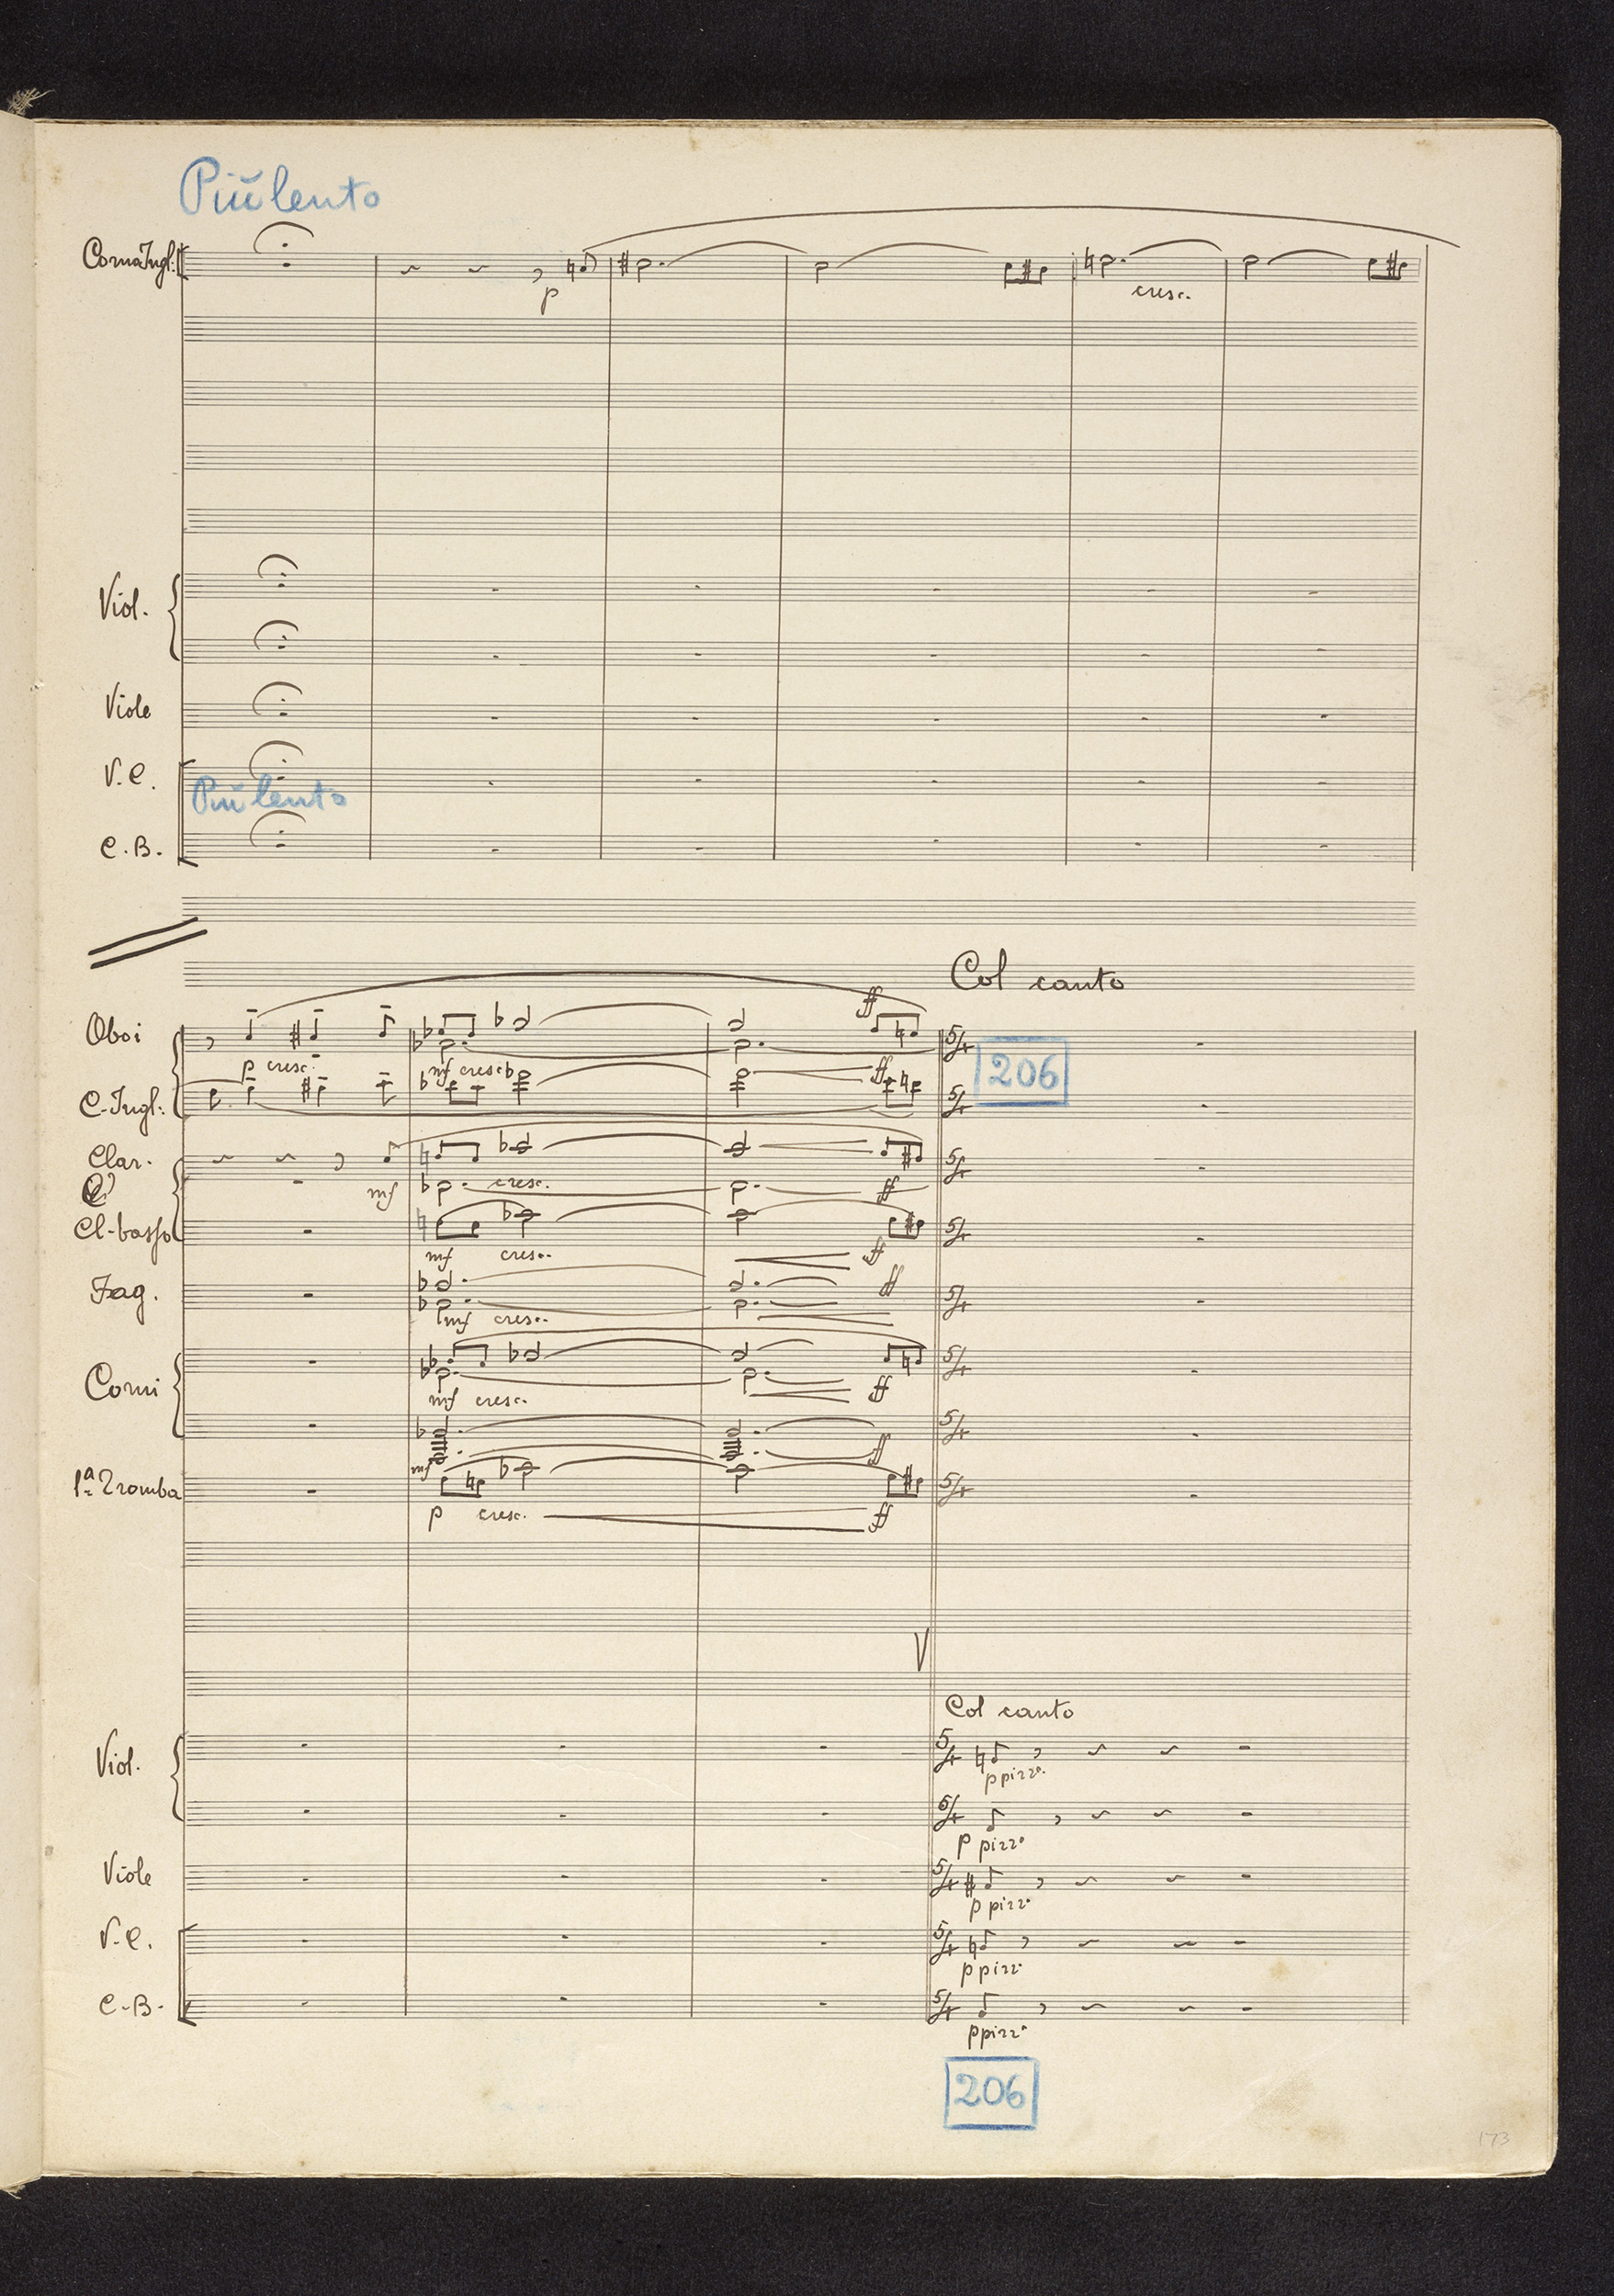 Più lento
Corno Ingl:
p
cresc.
Viol.
Viole
V.C.
Più lento
C.B.
Col canto
Oboi
ff
5/4
206
p cresc.
mf cresc
ff
C-Ingl:
5/4
Clar.
5/4
mf
cresc.
ff
Cl-basso
5/4
mf cresc.
ff
Fag.
ff
5/4
mf cresc.
Corni
5/4
mf cresc.
ff
5/4
mf
ff
1ª Tromba
5/4
p cresc.
ff
V
Col canto
Viol.
5/4
p pizzº.
5/4
p pizzº
Viole
5/4
p pizz.
V.C.
5/4
p pizz.
C-B.
5/4
p pizzº
206
173